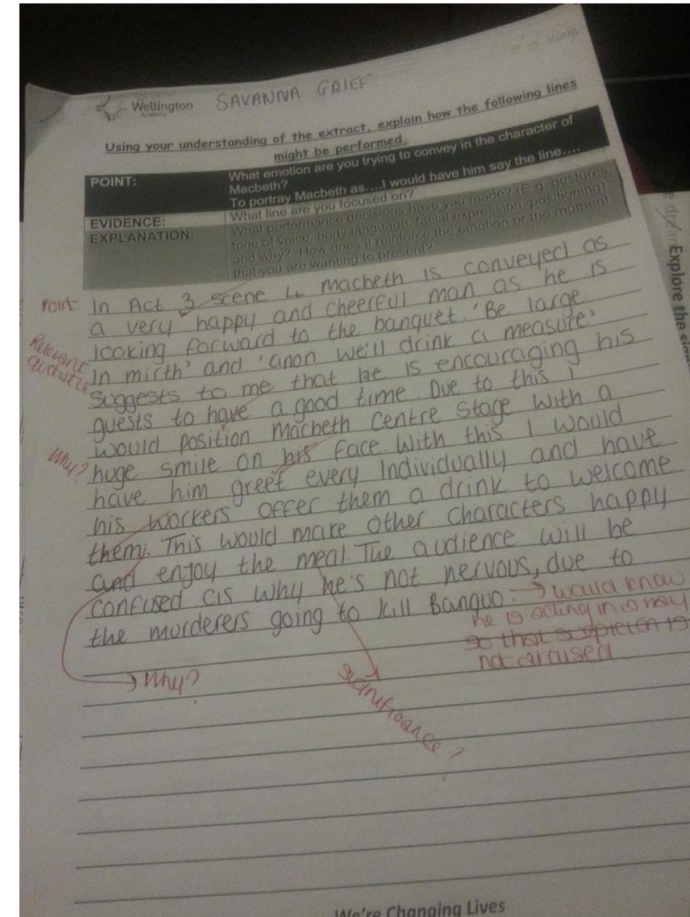 Wellington
Academy
SAVANNA GRIEF
Using your understanding of the extract, explain how the following lines
might be performed.
POINT:
What emotion are you trying to convey in the character of
Macbeth?
To portray Macbeth as....I would have him say the line....
EVIDENCE:
What line are you focused on?
EXPLANATION:
What performance decisions have you made? (E.g. gestures,
tone of voice, body language, facial expression, positioning)
and why? How does it reinforce the emotion or the moment
that you are wanting to present?
Point
In Act 3 scene 4 macbeth is conveyed as
a very happy and cheerful man as he is
looking forward to the banquet. 'Be large
Relevant
quotations
In mirth' and 'anon we'll drink a measure'
Suggests to me that he is encouraging his
guests to have a good time. Due to this I
would position Macbeth Centre Stage with a
Why?
huge smile on his face. With this I would
have him greet every Individually and have
his workers offer them a drink to welcome
them. This would make other characters happy
and enjoy the meal. The audience will be
confused as why he's not nervous, due to
the murderers going to kill Banquo.
→ would know
he is acting in a way
so that suspicion is
not aroused
Why?
significance?
Explore the
We're Changing Lives